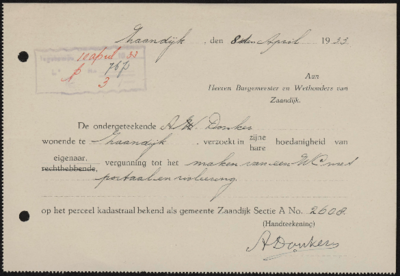 Zaandijk, den 8 den April 1933
Ingekomen 10 april 33
No 757
3
Aan
Heeren Burgemeester en Wethouders van
Zaandijk.
De ondergeteekende A W Donker
wonende te Zaandijk, verzoekt in zijne hoedanigheid van
hare
eigenaar,
rechthebbende, vergunning tot het maken van een WC met
portaal en rioleering
op het perceel kadastraal bekend als gemeente Zaandijk Sectie A No. 2608.
(Handteekening)
A Donker